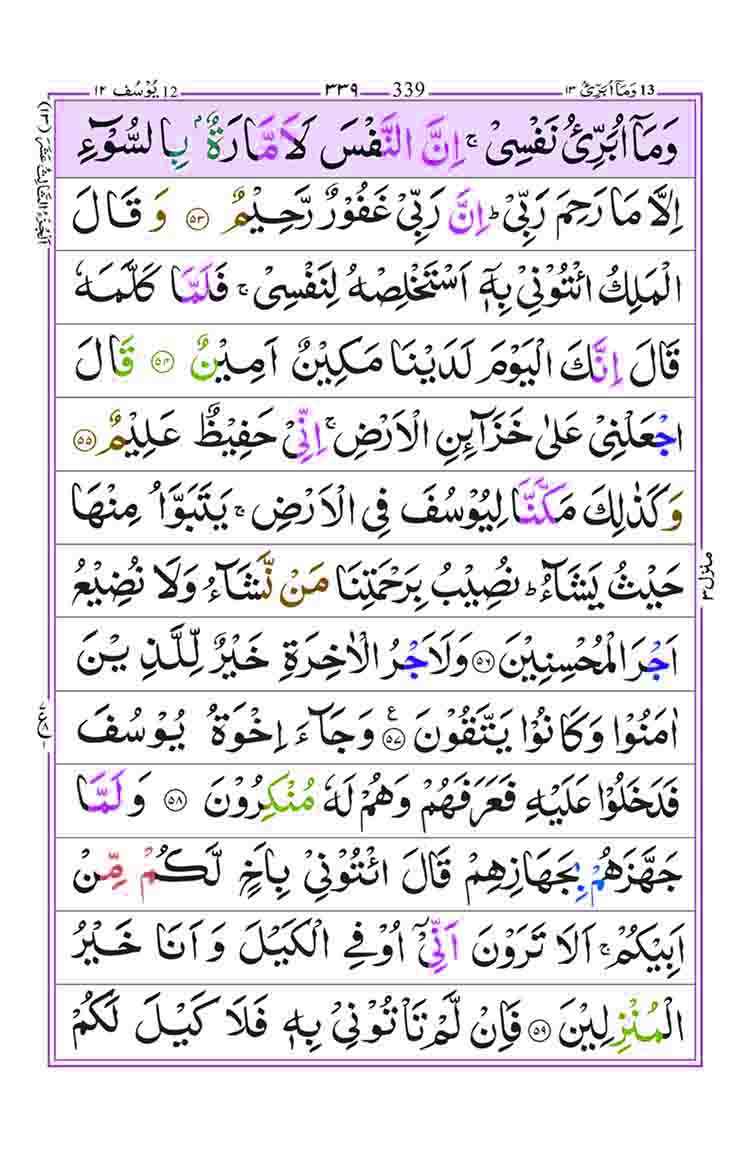 13 وَمَآ اُبَرِّئُ ١٣ 339 ٣٣٩ 12 يُوْسُف ١٢
اَلْجُزْءُ الثَّالِثُ عَشَرَ (١٣)
وَمَآ اُبَرِّئُ نَفْسِىْ ۚ اِنَّ النَّفْسَ لَاَمَّارَةٌۢ بِالسُّوْٓءِ
اِلَّا مَا رَحِمَ رَبِّىْ ؕ اِنَّ رَبِّىْ غَفُوْرٌ رَّحِيْمٌ ٥٣ وَ قَالَ
الْمَلِكُ ائْتُوْنِىْ بِهٖۤ اَسْتَخْلِصْهُ لِنَفْسِىْ ۚ فَلَمَّا كَلَّمَهٗ
قَالَ اِنَّكَ الْيَوْمَ لَدَيْنَا مَكِيْنٌ اَمِيْنٌ ٥٤ قَالَ
اجْعَلْنِىْ عَلٰى خَزَآئِنِ الْاَرْضِ ۚ اِنِّىْ حَفِيْظٌ عَلِيْمٌ ٥٥
وَكَذٰلِكَ مَكَّنَّا لِيُوْسُفَ فِى الْاَرْضِ ۚ يَتَبَوَّاُ مِنْهَا
حَيْثُ يَشَآءُ ؕ نُصِيْبُ بِرَحْمَتِنَا مَنْ نَّشَآءُ وَلَا نُضِيْعُ
مَنْزِل ٣
اَجْرَ الْمُحْسِنِيْنَ ٥٦ وَلَاَجْرُ الْاٰخِرَةِ خَيْرٌ لِّلَّذِيْنَ
اٰمَنُوْا وَكَانُوْا يَتَّقُوْنَ ٥٧ ع وَجَآءَ اِخْوَةُ يُوْسُفَ
فَدَخَلُوْا عَلَيْهِ فَعَرَفَهُمْ وَهُمْ لَهٗ مُنْكِرُوْنَ ٥٨ وَلَمَّا
جَهَّزَهُمْ بِجَهَازِهِمْ قَالَ ائْتُوْنِىْ بِاَخٍ لَّكُمْ مِّنْ
اَبِيْكُمْ ۚ اَلَا تَرَوْنَ اَنِّىْۤ اُوْفِى الْكَيْلَ وَ اَنَا خَيْرُ
الْمُنْزِلِيْنَ ٥٩ فَاِنْ لَّمْ تَاْتُوْنِىْ بِهٖ فَلَا كَيْلَ لَكُمْ